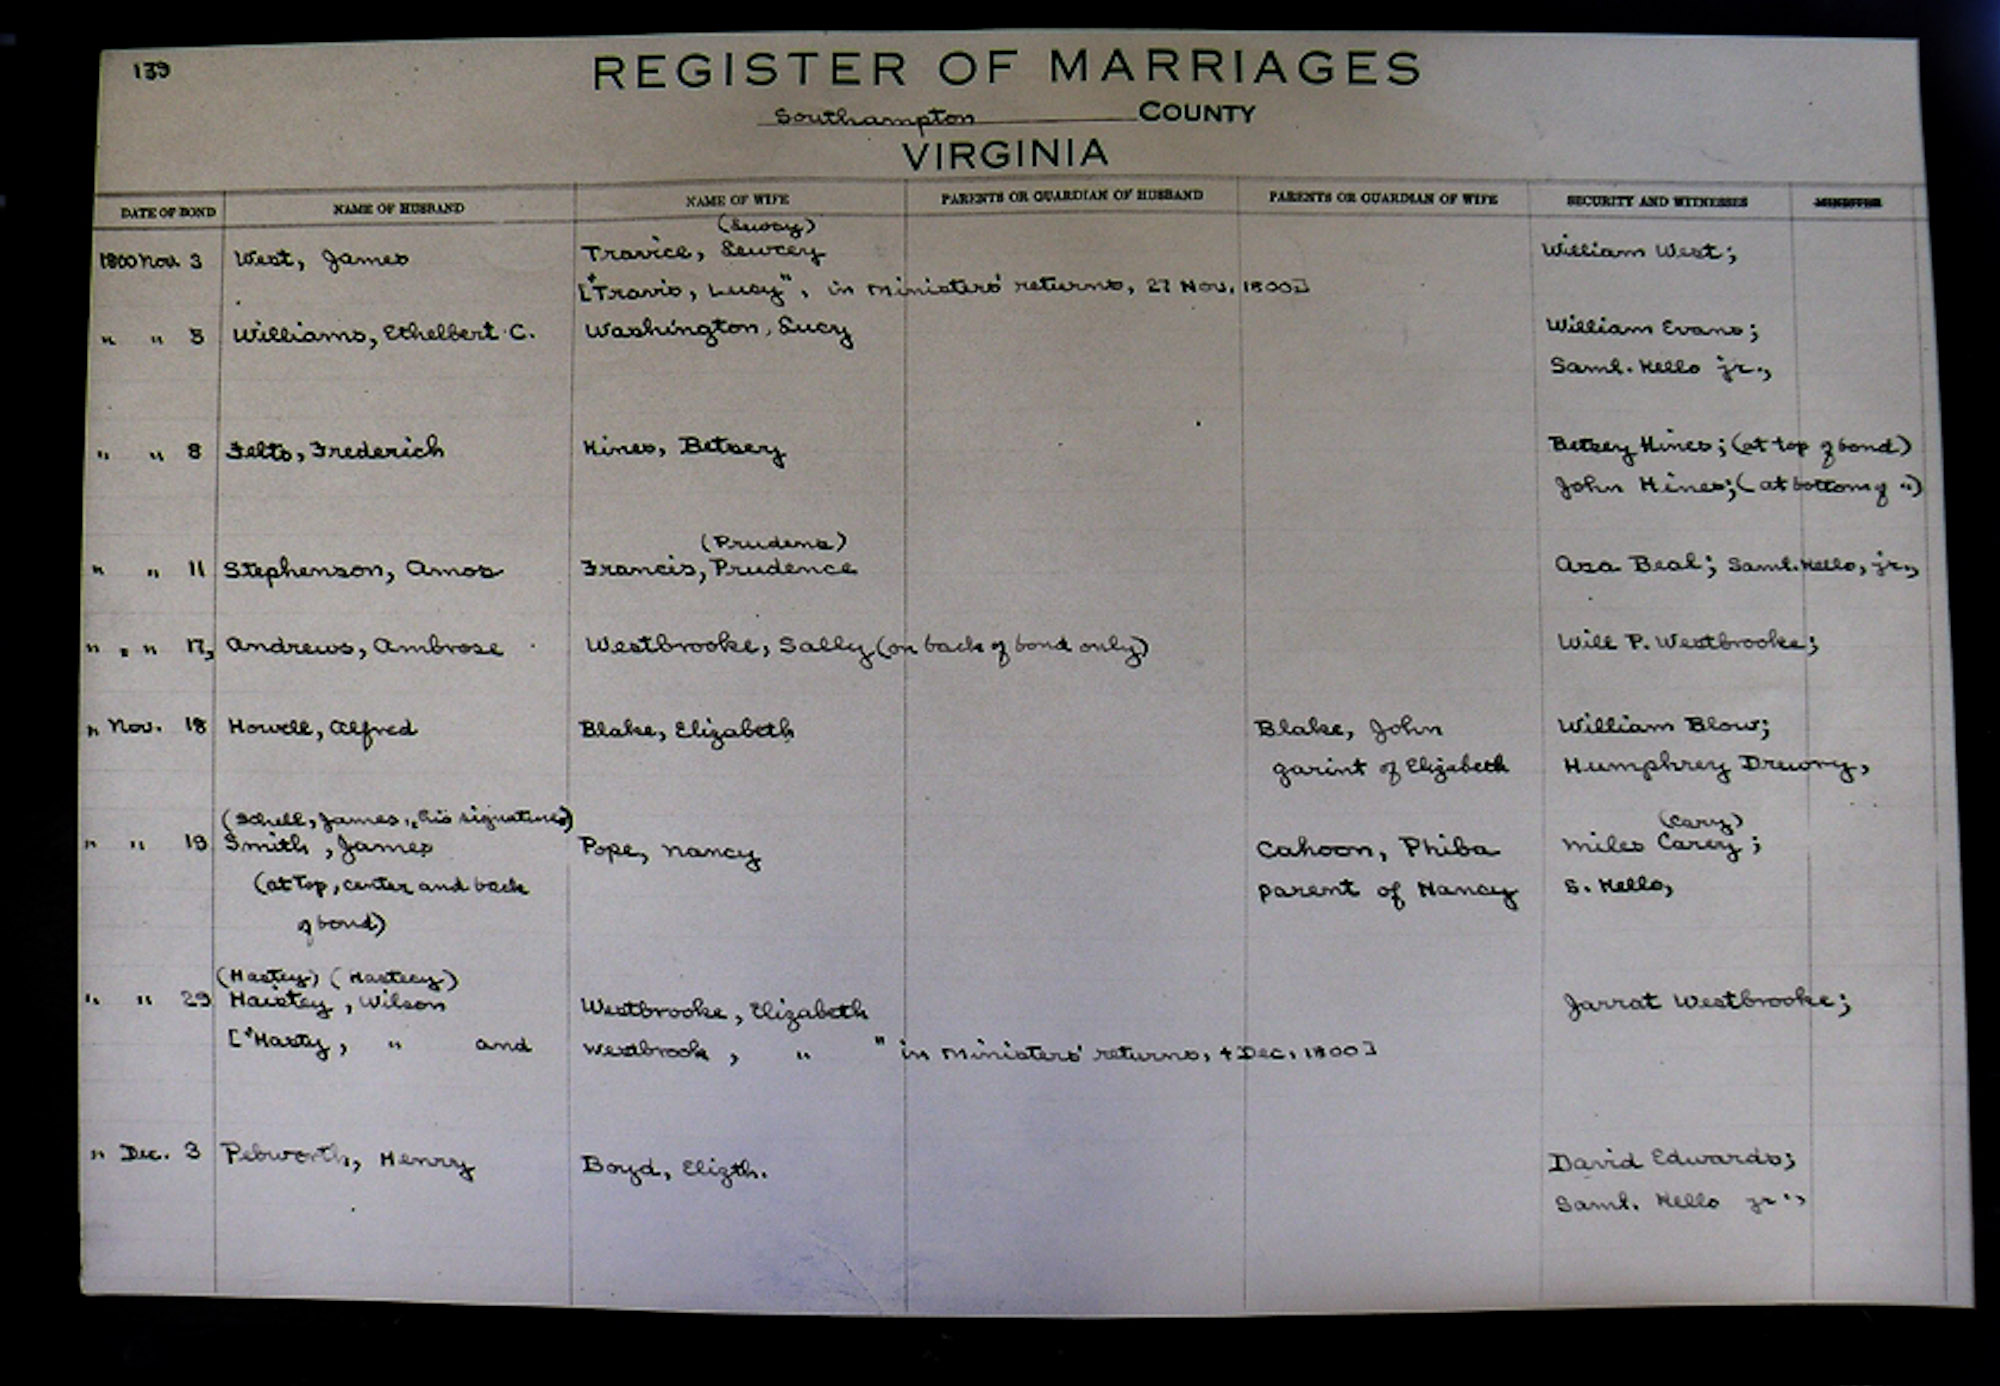 139
REGISTER OF MARRIAGES
Southampton COUNTY
VIRGINIA
DATE OF BOND NAME OF HUSBAND NAME OF WIFE PARENTS OR GUARDIAN OF HUSBAND PARENTS OR GUARDIAN OF WIFE SECURITY AND WITNESSES MINISTER
1800 Nov. 3 West, James Travice, Lewcey William West;
["Travis, Lucy", in Ministers' returns, 27 Nov. 1800]
" " Williams, Ethelbert C. Washington, Lucy William Evans;
Saml. Kello jr.,
" " 8 Felts, Frederich Hines, Betsey Betsey Hines; (at top of bond)
John Hines; (at bottom of ")
(Prudens)
" " 11 Stephenson, Amos Francis, Prudence Aza Beal; Saml. Kello, jr.,
" " " 17, Andrews, Ambrose Westbrooke, Sally (on back of bond only) Will P. Westbrooke;
" Nov. 18 Howell, Alfred Blake, Elizabeth Blake, John William Blow;
garint of Elizabeth Humphrey Drewry,
(Schell, James, his signature) (Cary)
" " 19 Smith, James Pope, Nancy Cahoon, Phiba Miles Carey;
(at top, center and back parent of Nancy S. Kello,
of bond)
(Hastey) (Hasteey)
" " 29 Haistey, Wilson Westbrooke, Elizabeth Jarrat Westbrooke;
["Hasty, " and Westbrook, " " in Ministers' returns, 4 Dec. 1800]
" Dec. 3 Pebworth, Henry Boyd, Elizth. David Edwards;
Saml. Kello jr.,